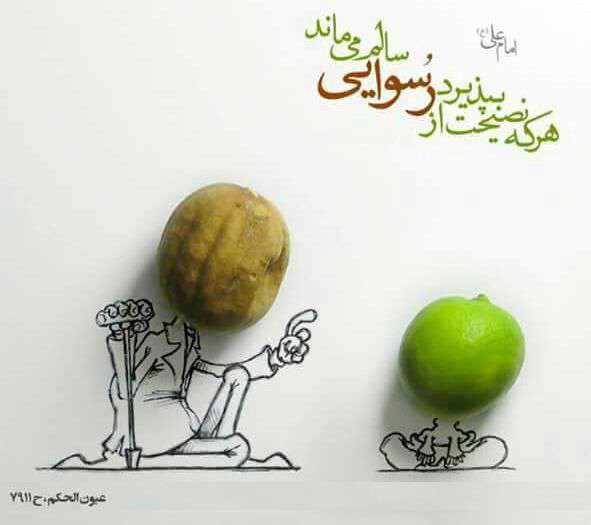 امام علی (ع)
هرکه نصیحت
بپذیرد از
رُسوایی
سالم می‌ماند
عیون الحکم، ح ۷۹۱۱